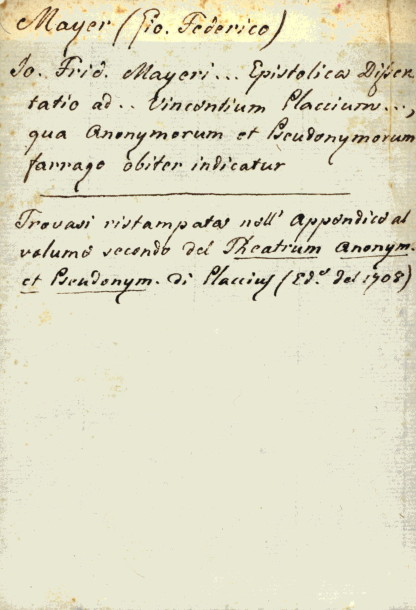 Mayer (Gio. Federico)
Jo. Frid. Mayeri... Epistolica Disser
tatio ad.. Vincentium Placcium...,
qua Anonymorum et Pseudonymorum
farrago obiter indicatur
Trovasi ristampata nell' Appendice al
volume secondo del Theatrum Anonym.
et Pseudonym. di Placcius (Ed.e del 1708)